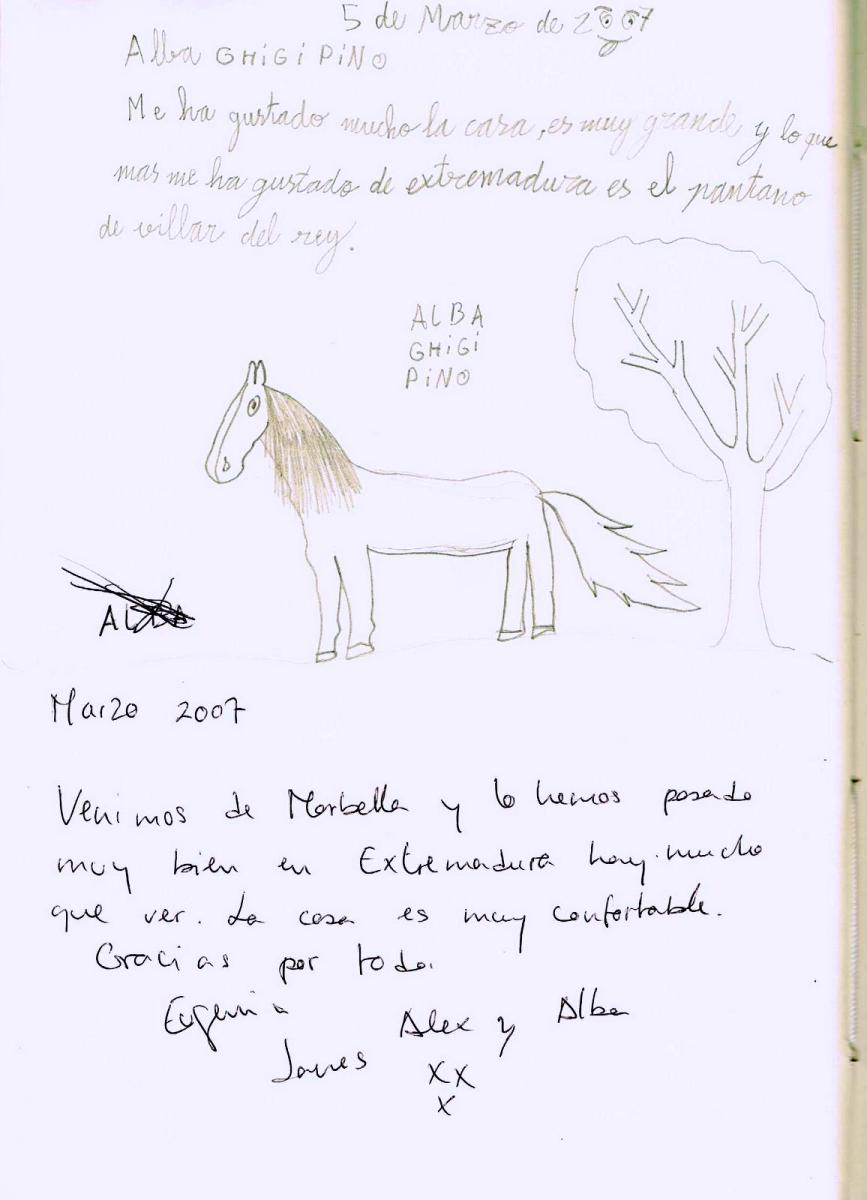 5 de Marzo de 2007
Alba GHiGi PiNO
Me ha gustado mucho la casa, es muy grande y lo que
mas me ha gustado de extremadura es el pantano
de villar del rey.
ALBA
GHiGi
PiNO
ALBA
Marzo 2007
Venimos de Marbella y lo hemos pasado
muy bien en Extremadura hay mucho
que ver. La casa es muy confortable.
Gracias por todo.
Eugenia
Alex y Alba
James
XX
X